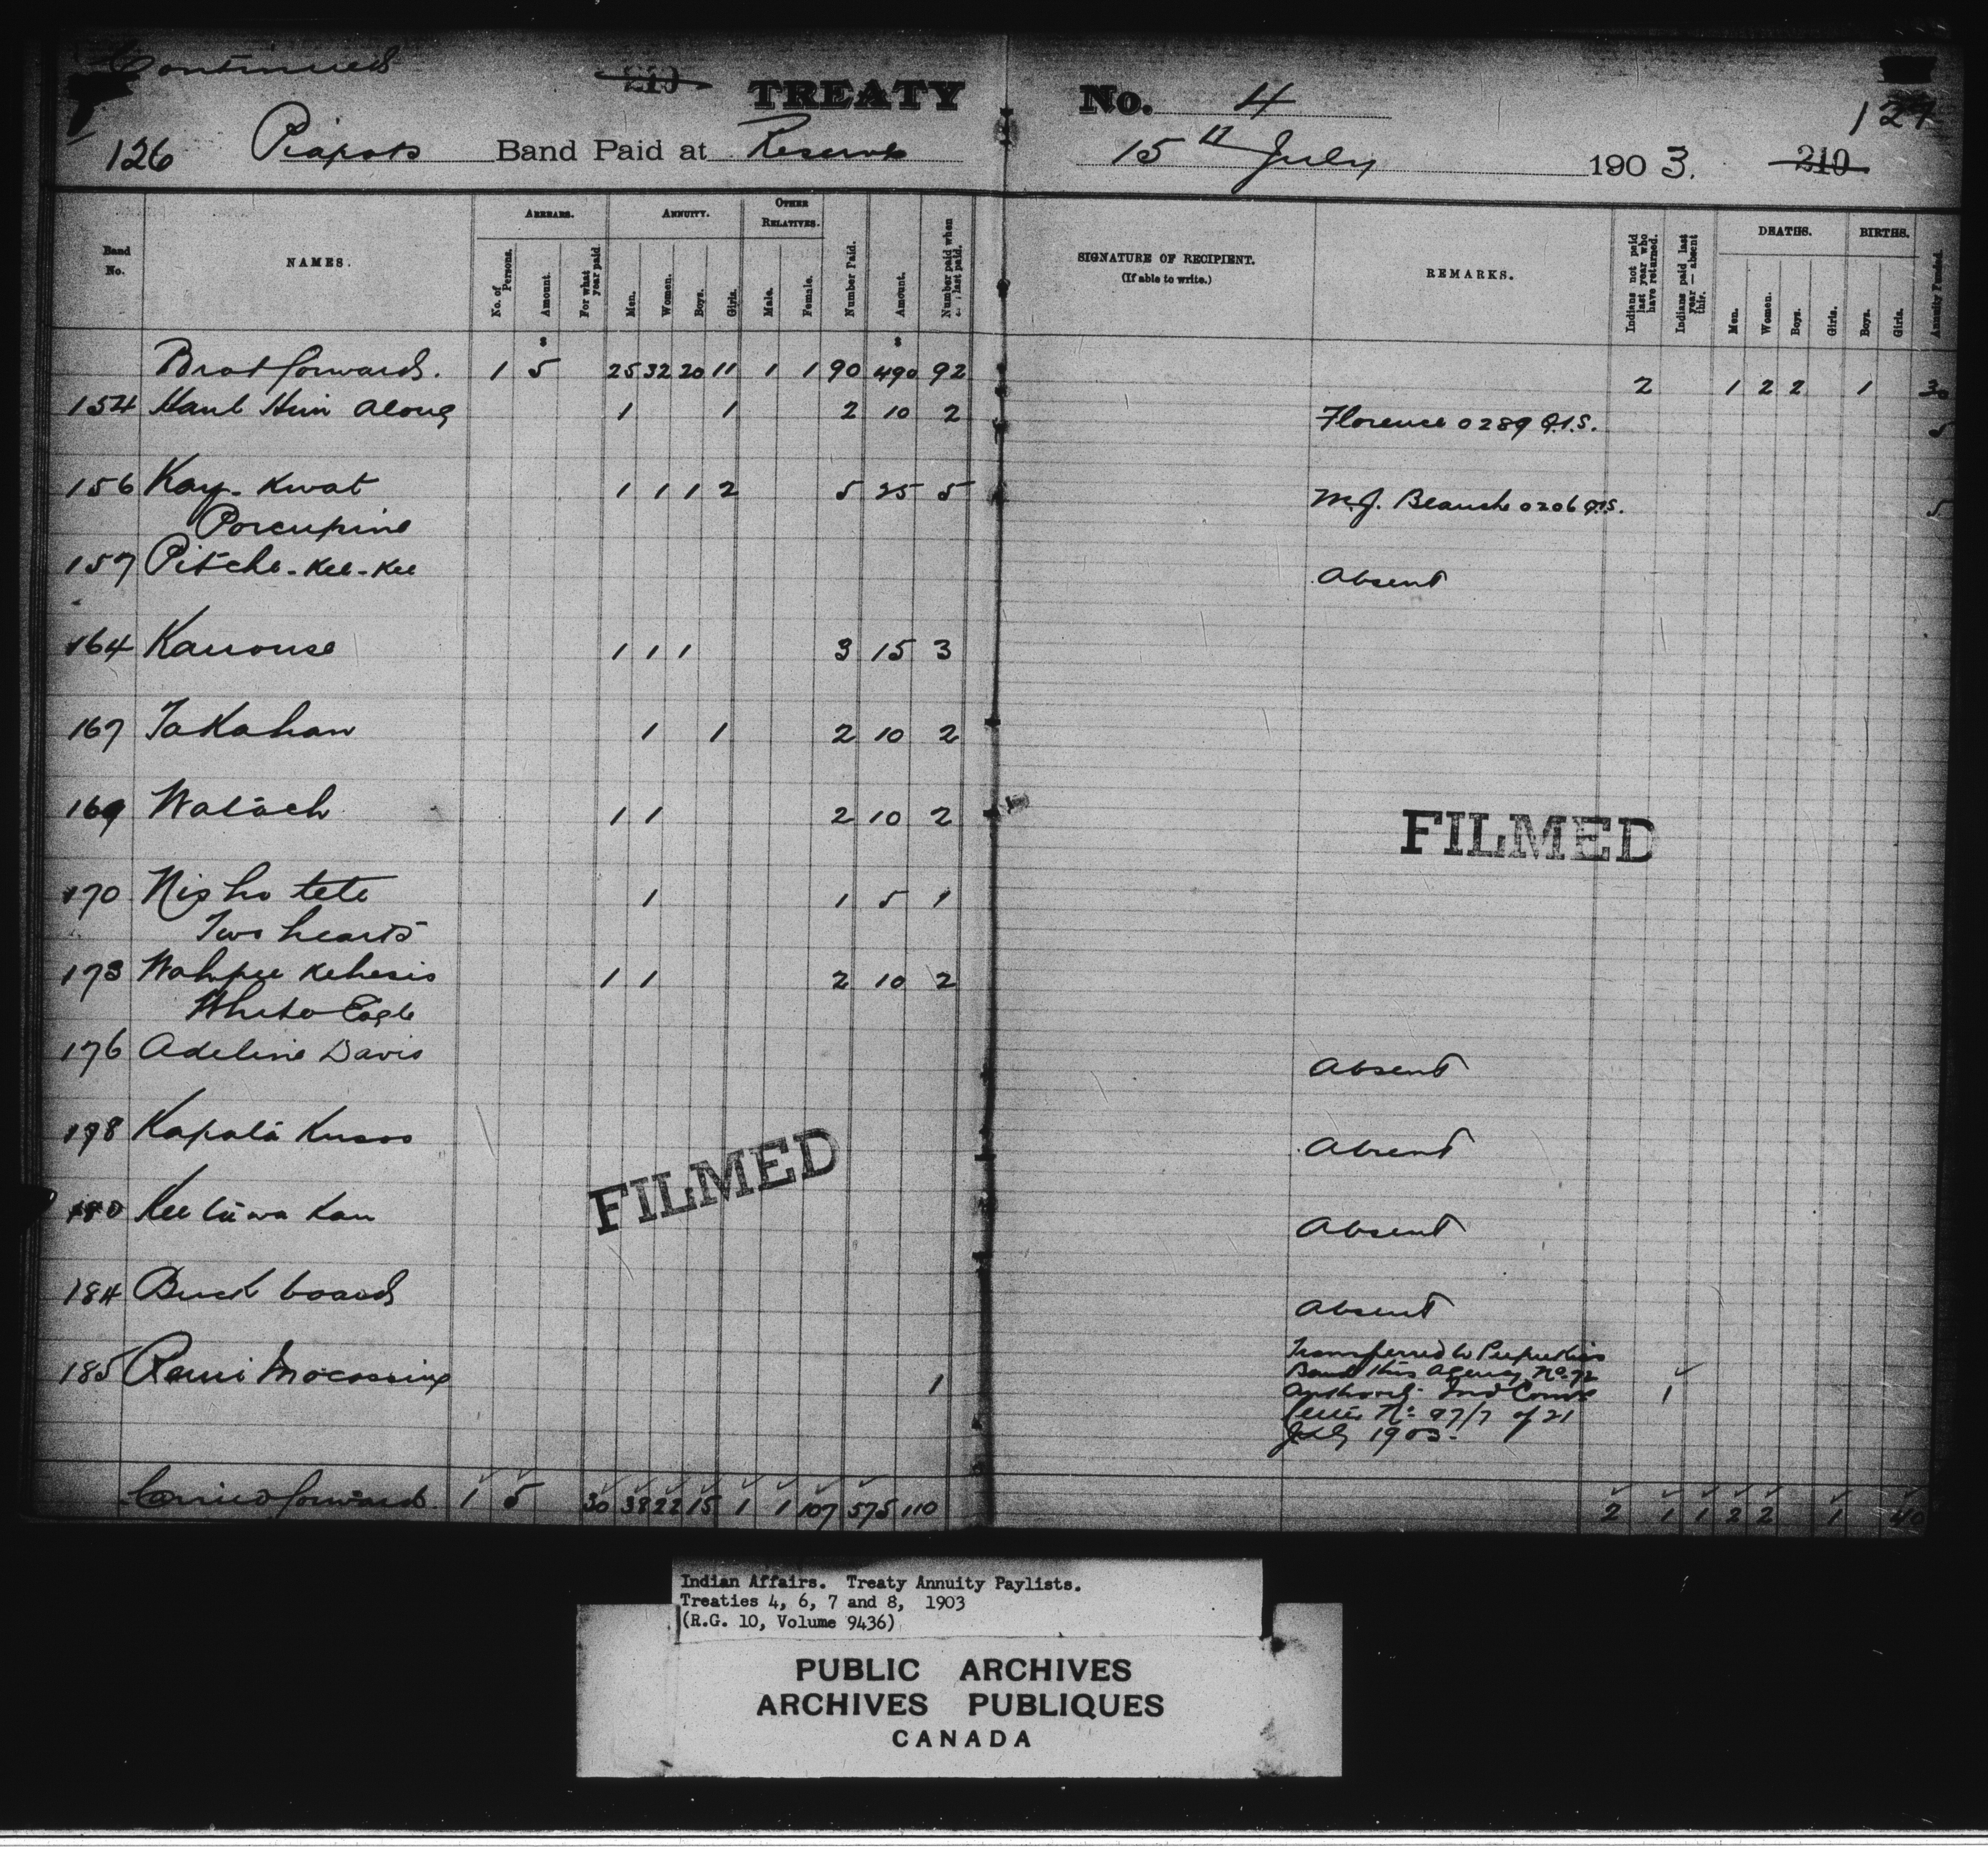 Continued
210 TREATY No. 4
127
126 Piapots Band Paid at Reserve 15th July 1903. 210
Band No.
NAMES.
ARREARS.
No. of Persons.
Amount.
For what year paid
ANNUITY.
Men.
Women.
Boys.
Girls.
OTHER RELATIVES.
Male.
Female.
Number Paid.
Amount.
Number paid when last paid.
SIGNATURE OF RECIPIENT.
(If able to write.)
REMARKS.
Indians not paid last year who have returned.
Indians paid last year — absent this.
DEATHS.
Men.
Women.
Boys.
Girls.
BIRTHS.
Boys.
Girls.
Annuity Funded.
$ $
Brot forward. 1 5 25 32 20 11 1 1 90 490 92 2 1 2 2 1 30
154 Haul Him Along 1 1 2 10 2 Florence 0289 Q.I.S. 5
156 Kay-Kwat 1 1 1 2 5 25 5 M.J. Blanche 0206 Q.I.S. 5
Porcupine
157 Pitche-Kee-Kee Absent
164 Kanouse 1 1 1 3 15 3
167 Takahan 1 1 2 10 2
169 Watach 1 1 2 10 2
FILMED
170 Nisho tete 1 1 5 1
Two hearts
173 Wahpee Kehesis 1 1 2 10 2
White Eagle
176 Adeline Davis Absent
178 Kapata Kusoo Absent
FILMED
180 Kee tuwa Kan Absent
184 Buck board Absent
185 Remi Mocassine 1 Transferred to Peepeekisis
Band this Agency No. 92
Authority Ind Comrs 1
letter No. 97/7 of 21
July 1903.
Carried forward 1 5 30 38 22 15 1 1 107 575 110 2 1 1 2 2 1 40
Indian Affairs. Treaty Annuity Paylists.
Treaties 4, 6, 7 and 8, 1903
(R.G. 10, Volume 9436)
PUBLIC ARCHIVES
ARCHIVES PUBLIQUES
CANADA